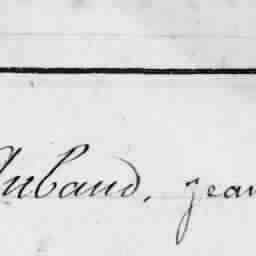 Aubaud, jean